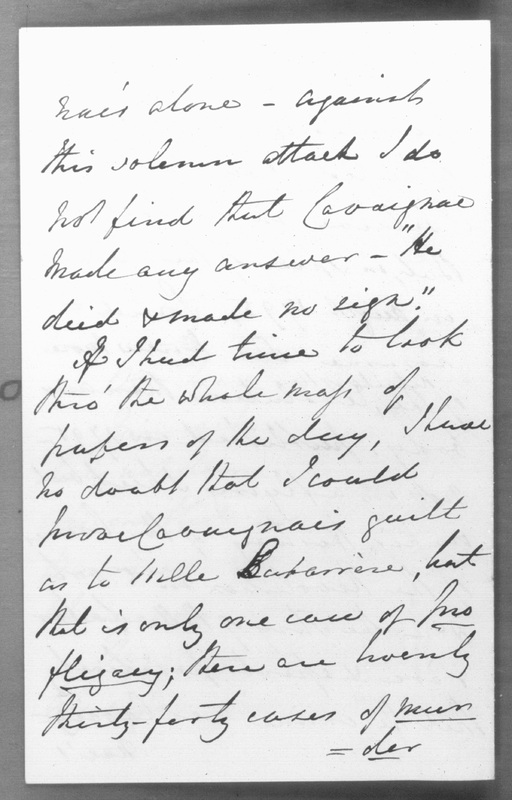 nac's alone - against
this solemn attack I do
not find that Cavaignac
made any answer - "He
died & made no sign."
If I had time to look
thro' the whole mass of
papers of the day, I have
no doubt that I could
prove Cavaignac's guilt
as to Mlle Labarrère, but
that is only one case of pro
fligacy; there are twenty
thirty-forty cases of mur
=der